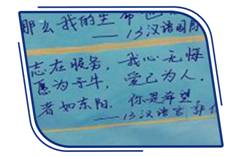 那么我的生命也
——13汉语国际
志在服务，我心无悔
愿为子牛，爱己为人，
者如东阳，你是希望
——13汉语言